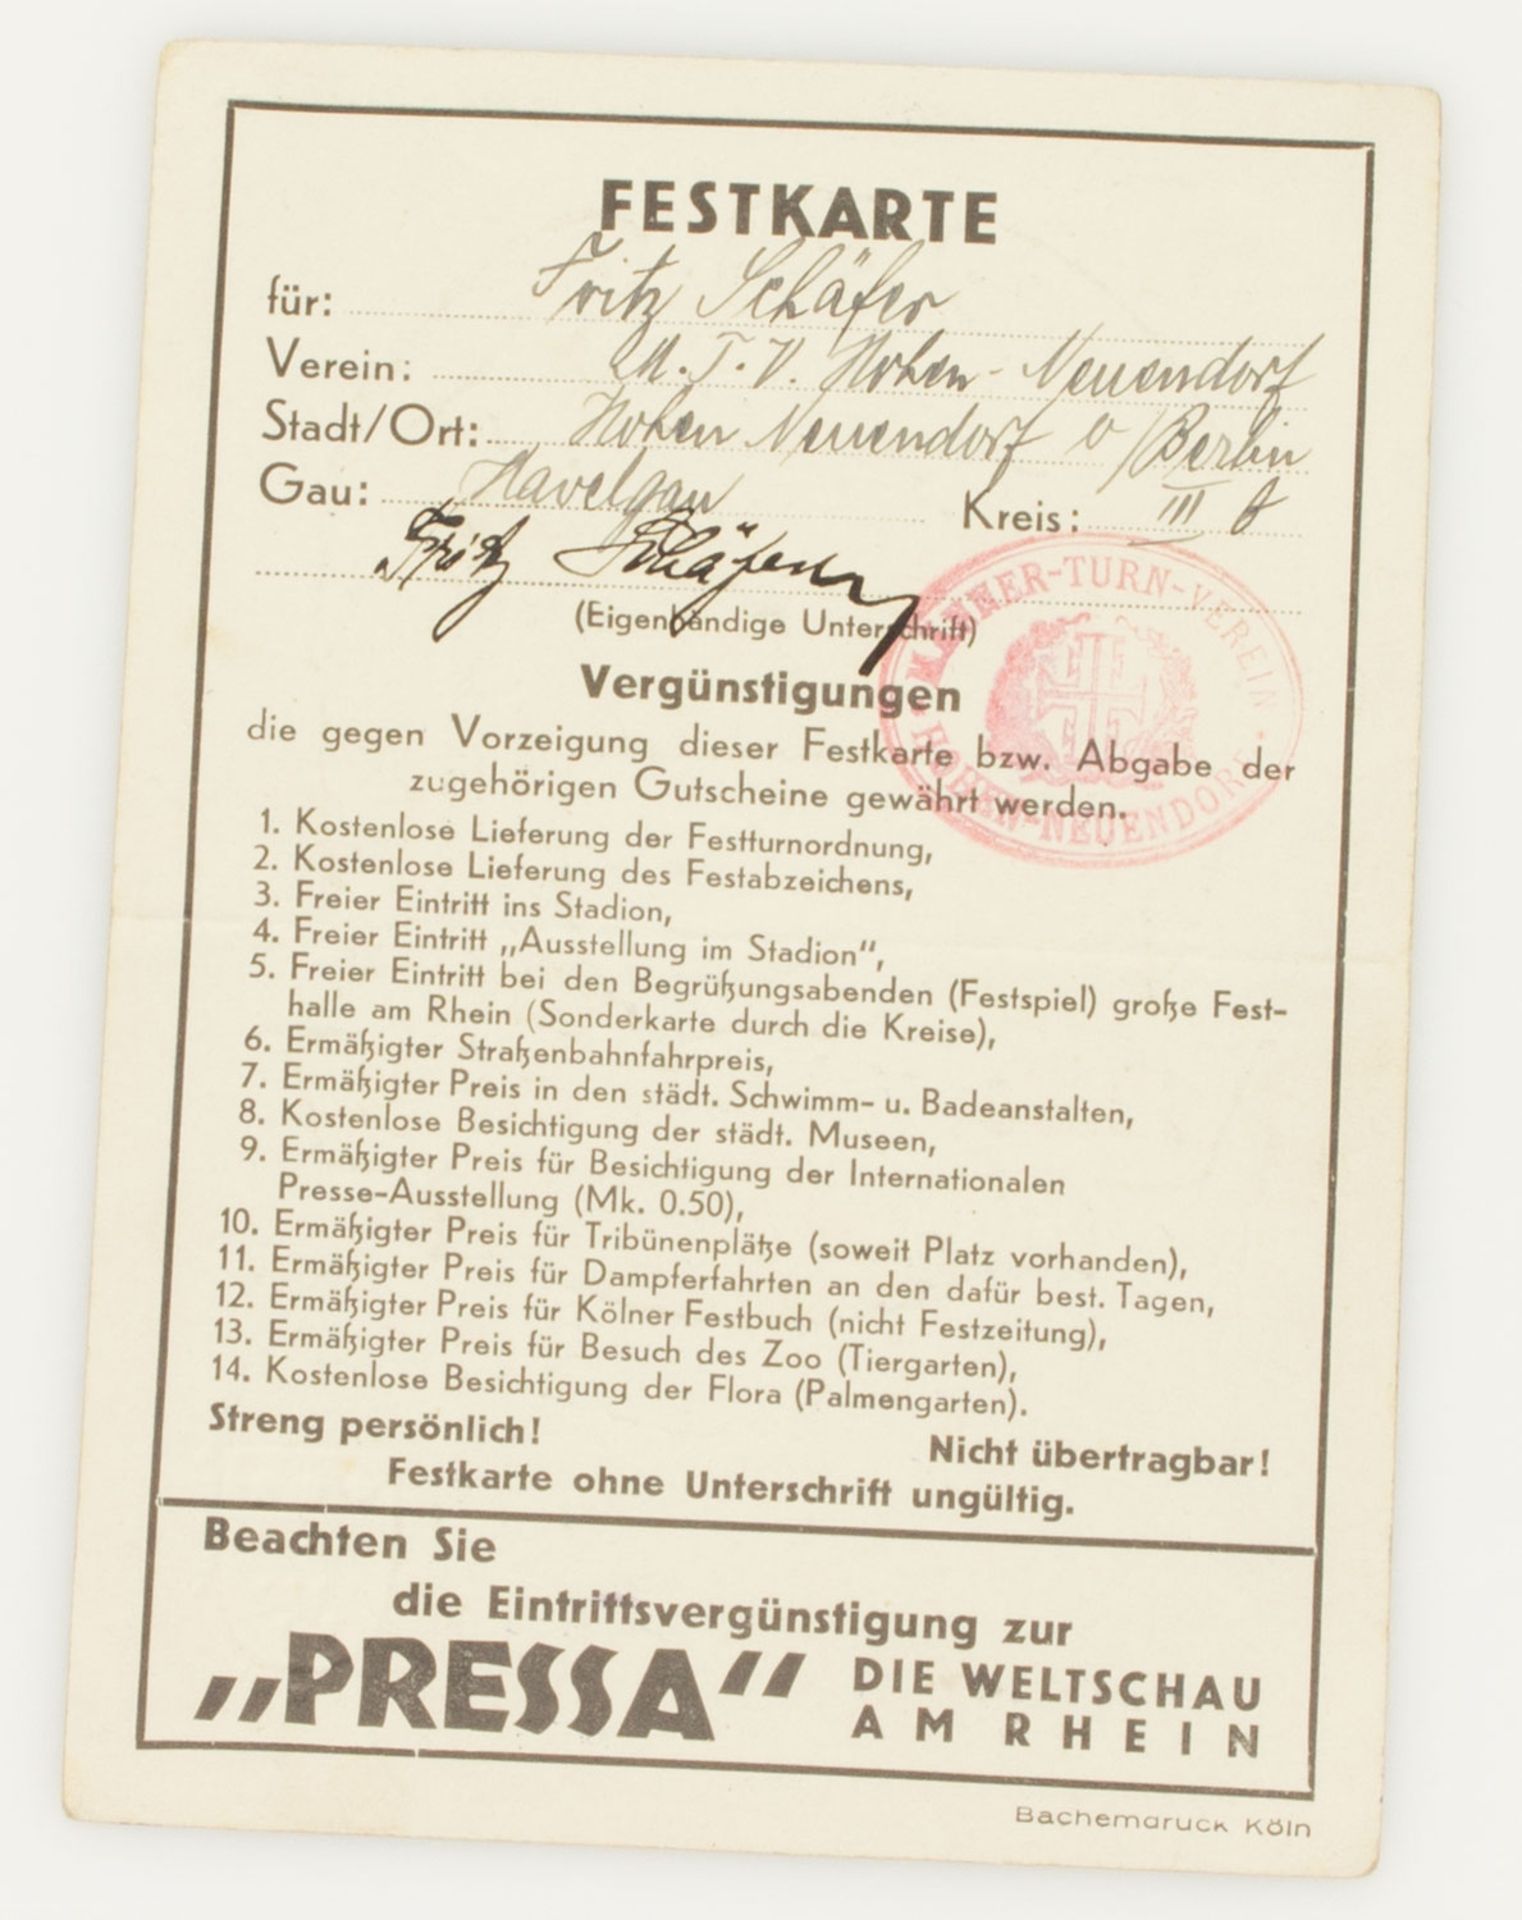 FESTKARTE
für: Fritz Schäfer
Verein: M.T.V. Hohen-Neuendorf
Stadt/Ort: Hohen Neuendorf b/Berlin
Gau: Havelgau Kreis: III b
Fritz Schäfer
(Eigenhändige Unterschrift)
MÄNNER-TURN-VEREIN
HOHEN-NEUENDORF
Vergünstigungen
die gegen Vorzeigung dieser Festkarte bzw. Abgabe der
zugehörigen Gutscheine gewährt werden.
1. Kostenlose Lieferung der Festturnordnung,
2. Kostenlose Lieferung des Festabzeichens,
3. Freier Eintritt ins Stadion,
4. Freier Eintritt „Ausstellung im Stadion“,
5. Freier Eintritt bei den Begrüßungsabenden (Festspiel) große Fest-
halle am Rhein (Sonderkarte durch die Kreise),
6. Ermäßigter Straßenbahnfahrpreis,
7. Ermäßigter Preis in den städt. Schwimm- u. Badeanstalten,
8. Kostenlose Besichtigung der städt. Museen,
9. Ermäßigter Preis für Besichtigung der Internationalen
Presse-Ausstellung (Mk. 0.50),
10. Ermäßigter Preis für Tribünenplätze (soweit Platz vorhanden),
11. Ermäßigter Preis für Dampferfahrten an den dafür best. Tagen,
12. Ermäßigter Preis für Kölner Festbuch (nicht Festzeitung),
13. Ermäßigter Preis für Besuch des Zoo (Tiergarten),
14. Kostenlose Besichtigung der Flora (Palmengarten).
Streng persönlich! Nicht übertragbar!
Festkarte ohne Unterschrift ungültig.
Beachten Sie
die Eintrittsvergünstigung zur
„PRESSA“ DIE WELTSCHAU
AM RHEIN
Bachemdruck Köln